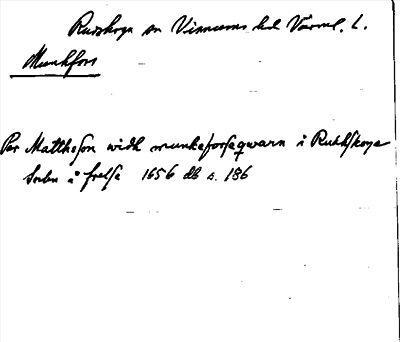 Rudskoga sn Visnums hd Värml. l.
Munkfors
Per Matthesson widh munkeforseqwarn i Rudhskoga
Sochn i frelse 1656 db s. 186